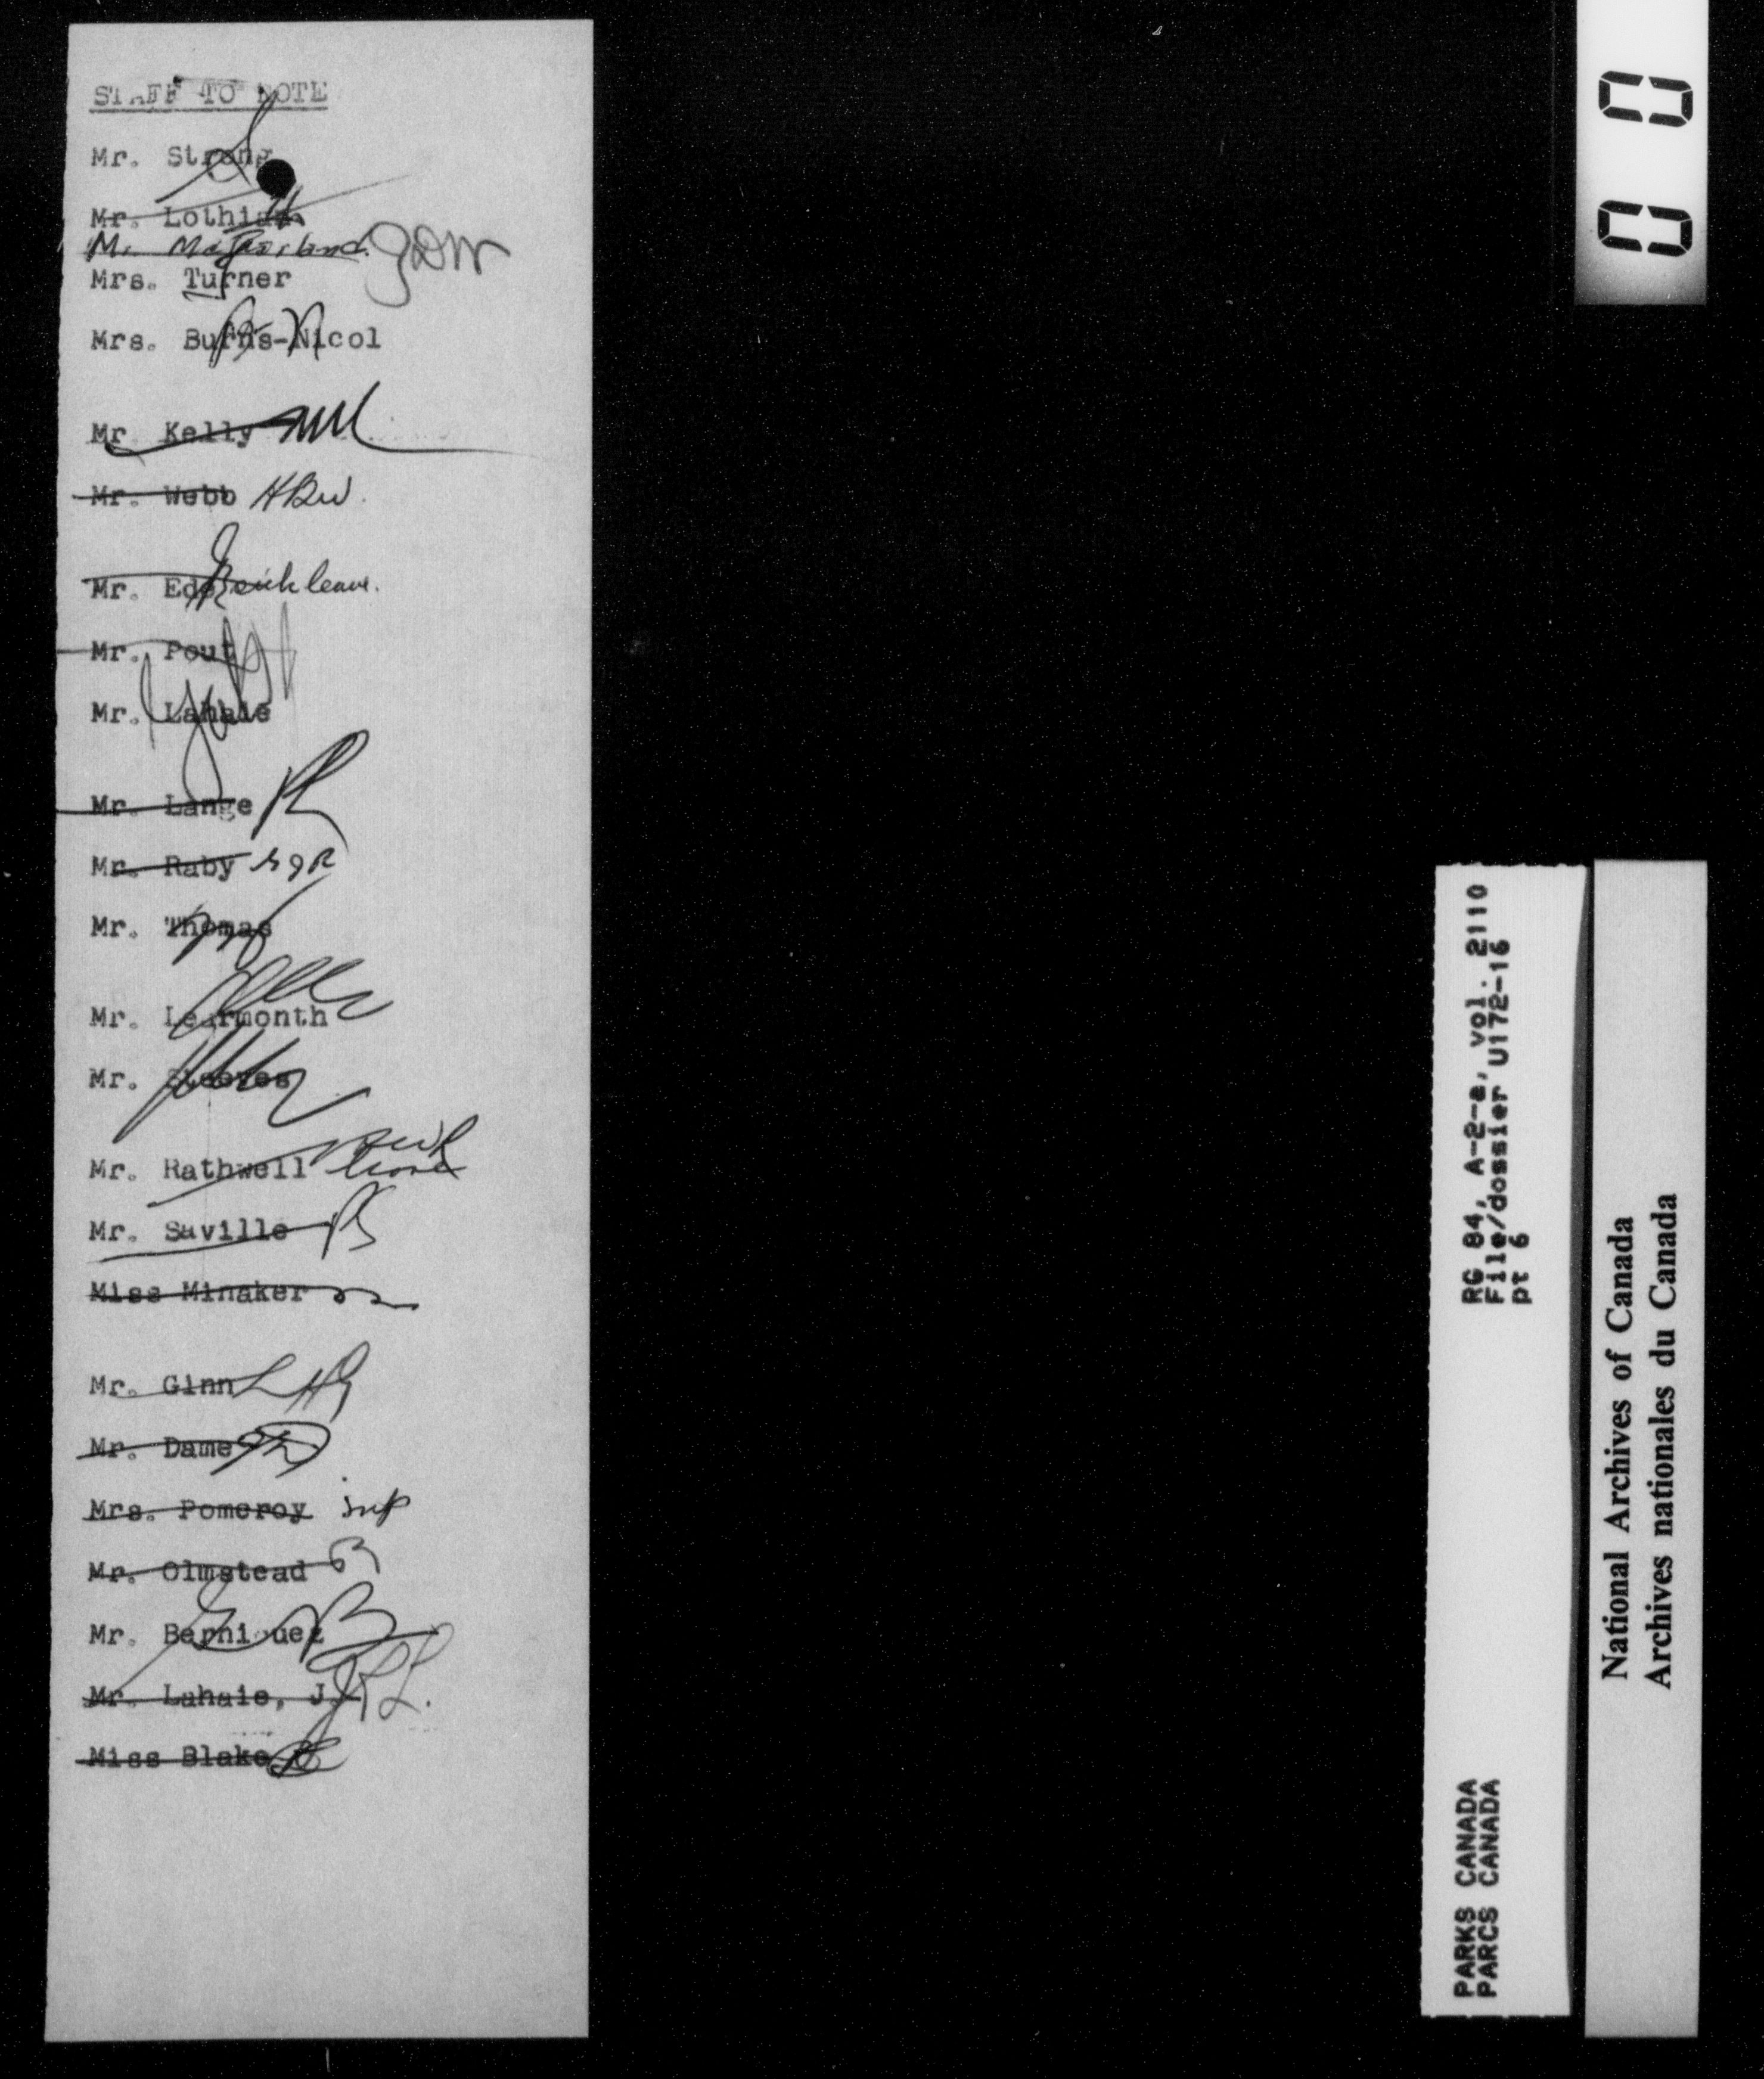 STAFF TO NOTE
Mr. Strong
Mr. Lothian
Mr. McFarland GDM
Mrs. Turner
Mrs. Burns-Nicol
Mr. Kelly
Mr. Webb HBW.
Mr. Ede sick leave.
Mr. Pout
Mr. Lahaie
Mr. Lange
Mr. Raby
Mr. Thomas
Mr. Learmonth
Mr. Steeves
Mr. Rathwell
Mr. Saville
Miss Minaker
Mr. Ginn LHG
Mr. Dame
Mrs. Pomeroy
Mr. Olmstead
Mr. Berniquez
Mr. Lahaie, J. JRL.
Miss Blake
00
RG 84, A-2-a, vol. 2110
File/dossier U172-16
pt 6
PARKS CANADA
PARCS CANADA
National Archives of Canada
Archives nationales du Canada